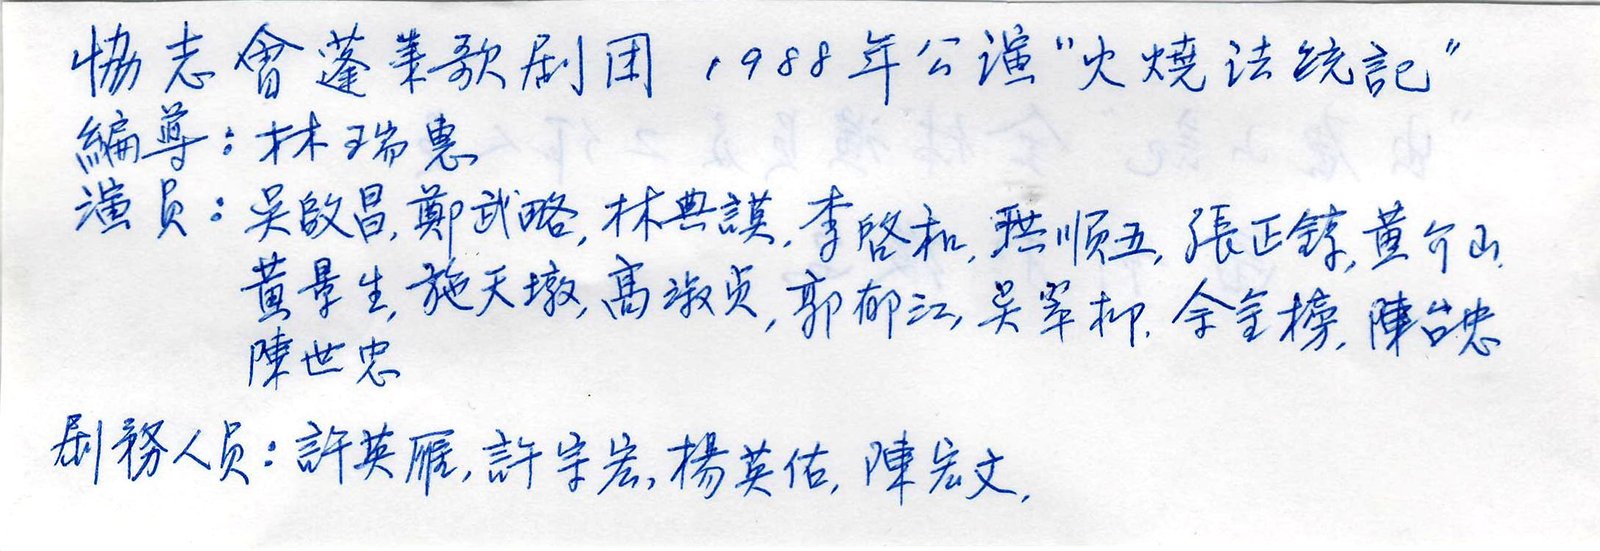 協志會蓬莱歌剧团 1988年公演"火燒法統記"
編导：林瑞惠
演员：吴啟昌,鄭武略,林典謨,李啓和,洪顺五,張正鋒,黄介山,
黄景生,施天墩,高淑贞,郭郁江,吴翠柳,余金榜,陳台忠
陳世忠
剧務人员：許英雁,許宗宏,楊英佑,陳宏文,